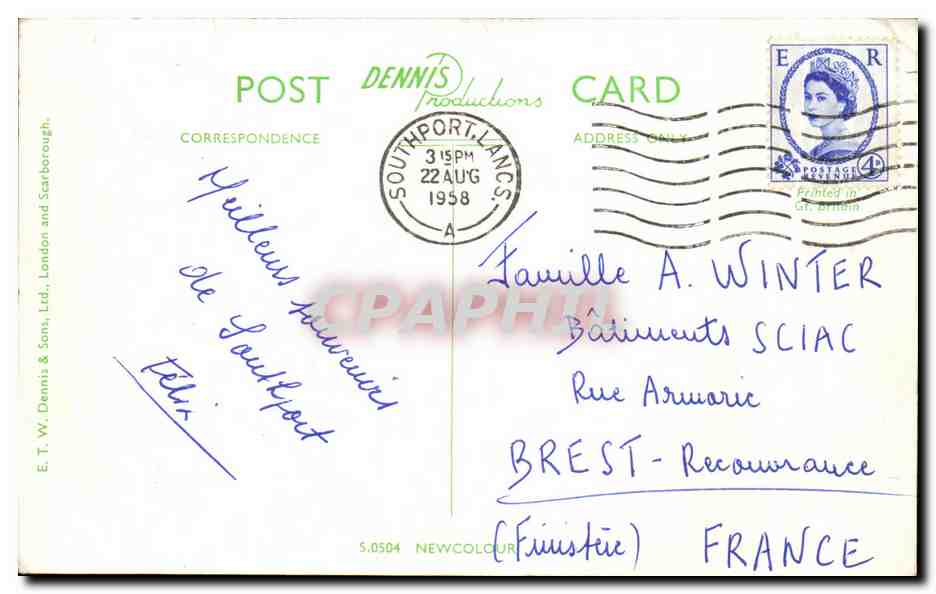 POST DENNIS Productions CARD
CORRESPONDENCE ADDRESS ONLY
E R
POSTAGE REVENUE 4D
Printed in
Gt. Britain
SOUTHPORT, LANCS.
3 15 PM
22 AUG
1958
A
E. T. W. Dennis & Sons, Ltd., London and Scarborough.
Meilleurs souvenirs
de Southport
Félix
Famille A. WINTER
Bâtiments SCIAC
Rue Armoric
BREST - Recouvrance
(Finistère) FRANCE
S.0504 NEWCOLOUR
CPAPHIL